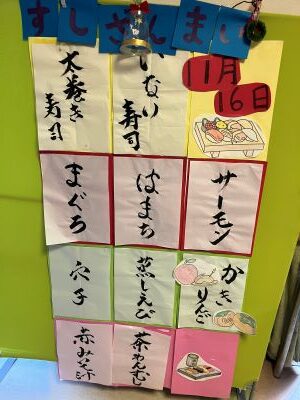 すしざんまい
11月
16日
いなり
寿司
太巻き
寿司
サーモン
はまち
まぐろ
かき
りんご
蒸しえび
穴子
茶わんむし
赤みそ汁